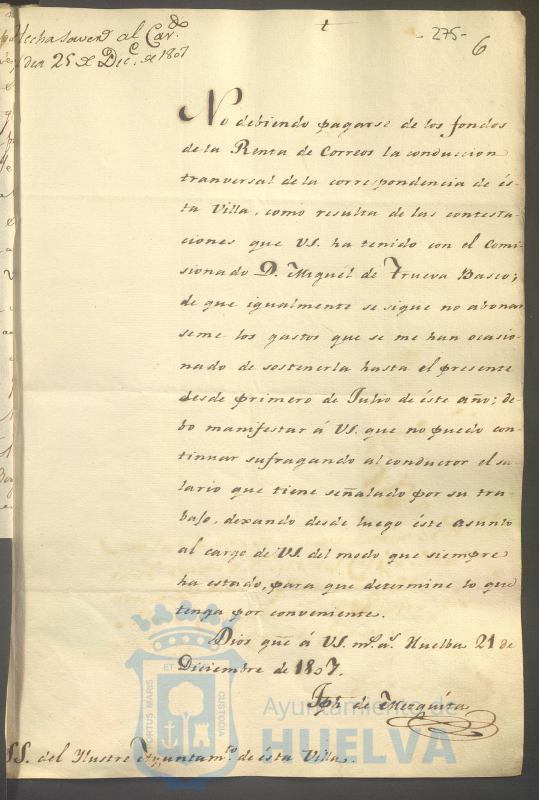 hecha saver al Cav.do
dia 25 de Dic.e de 1807
t
- 275 -
6
No debiendo pagarse de los fondos
de la Renta de Correos la conduccion
tranversal de la correspondencia de és-
ta Villa, como resulta de las contesta-
ciones que VS. ha tenido con el Comi-
sionado D. Miguel de Trueva Basco;
de que igualmente se sigue no abonar
seme los gastos que se me han ocasio-
nado de sostenerla hasta el presente
desde primero de Julio de éste año; de-
bo manifestar á VS. que no puedo con-
tinuar sufragando al conductor el sa-
lario que tiene señalado por su tra-
bajo, dexando desde luego éste asunto
al cargo de VS. del modo que siempre
ha estado, para que determine lo que
tenga por conveniente.
Dios gue á VS. m.s a.s Huelba 21 de
Diciembre de 1807.
Jph. de Mezquita
SS. del Ylustre Ayuntam.to de ésta Villa.
PORTUS MARIS ET CUSTODIA
Ayuntamiento de
HUELVA